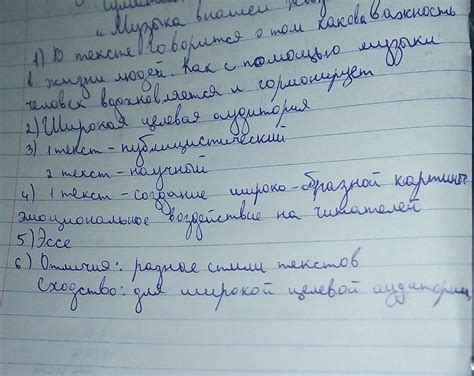 „Музыка в нашей
1) В тексте говорится о том какова важность
в жизни людей. Как с помощью музыки
человек вдохновляется и гормонирует
2) Широкая целевая аудитория
3) 1 текст - публицистический
2 текст - научный
4) 1 текст - создание широко-образной картины
эмоциональное воздействие на читателей
5) Эссе
6) Отличия: разное стили текстов
Сходство: для широкой целевой аудитории